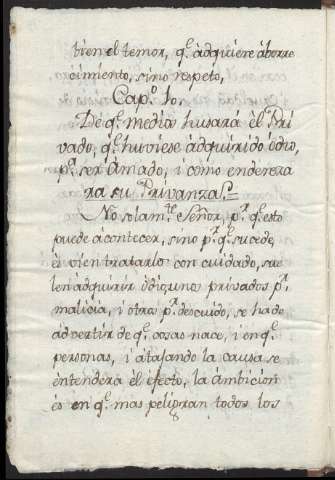 bien el temor, q.^e adquiere áborre
cimiento, sino respeto,
Cap.^o 10.
De q.^e medio husara el Pri
vado, q.^e huviese ádquirido ódio,
p.^a ser ámado, i cómo endereza
ra su Privanza.
No solam.^te Señor, p.^r q.^e esto
puede ácontecer, sino p.^r q.^e sucede,
és vien tratarlo con cuidado, sue
len ádquirir ódio, unos privados p.^r
malicia, i otros p.^r descuido, se ha de
advertir de q.^e cosas nace, i en q.^e
personas, i átajando la causa se
éntendera él éfecto, la ámbicion
és en q.^e mas peligran todos los